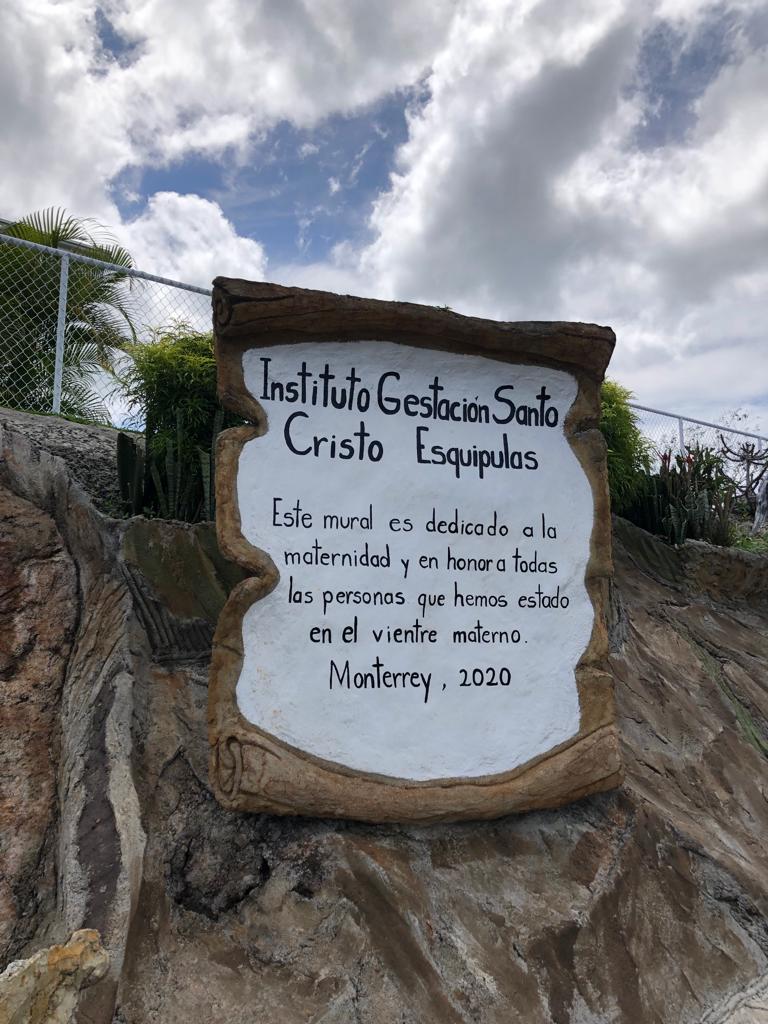 Instituto Gestación Santo
Cristo Esquipulas
Este mural es dedicado a la
maternidad y en honor a todas
las personas que hemos estado
en el vientre materno.
Monterrey, 2020